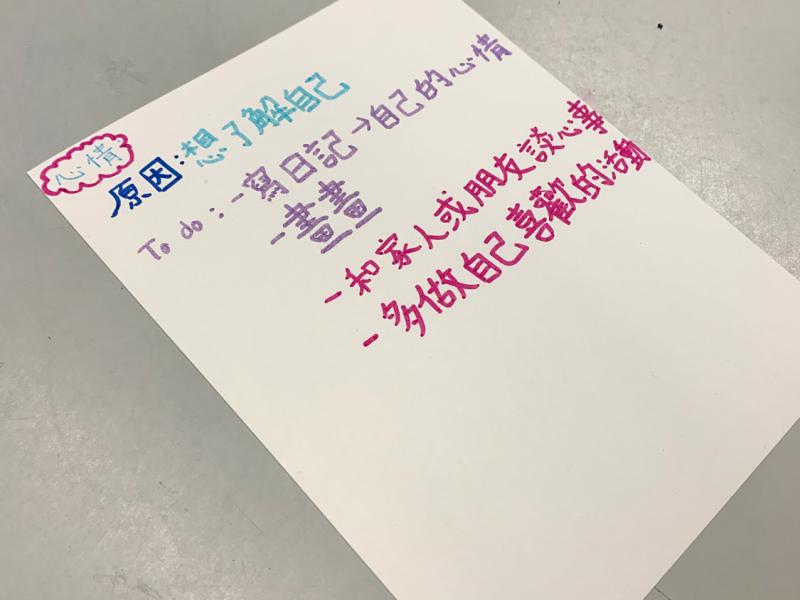 心情
原因:想了解自己
To do:-寫日記→自己的心情
-畫畫
-和家人或朋友談心事
-多做自己喜歡的活動